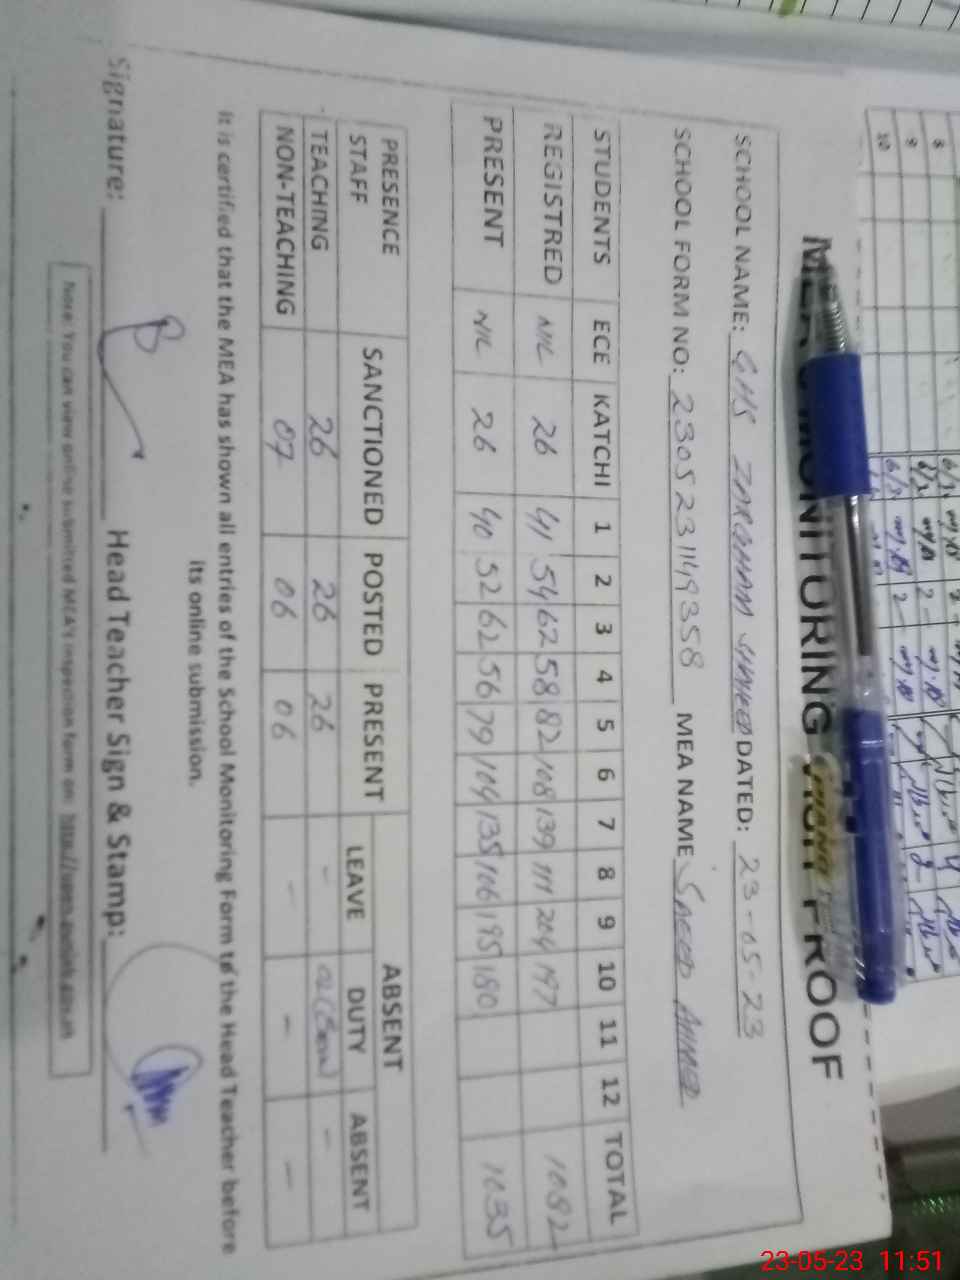 MEA MONITORING VISIT PROOF
SCHOOL NAME: GHS ZARGHAM DATED: 23-05-23
SCHOOL FORM NO: 2305231149358 MEA NAME SAEED AHMED
STUDENTS ECE KATCHI 1 2 3 4 5 6 7 8 9 10 11 12 TOTAL
REGISTRED NIL 26 41 54 62 58 82 108 139 111 204 197 1082
PRESENT NIL 26 40 52 62 56 79 104 135 106 195 180 1035
PRESENCE ABSENT
STAFF SANCTIONED POSTED PRESENT LEAVE DUTY ABSENT
TEACHING 26 26 26 - -
NON-TEACHING 07 06 06 - - -
It is certified that the MEA has shown all entries of the School Monitoring Form to the Head Teacher before
its online submission.
Signature: Head Teacher Sign & Stamp:
Note: You can view online submitted MEA's inspection form on:
8
9
10
23-05-23 11:51